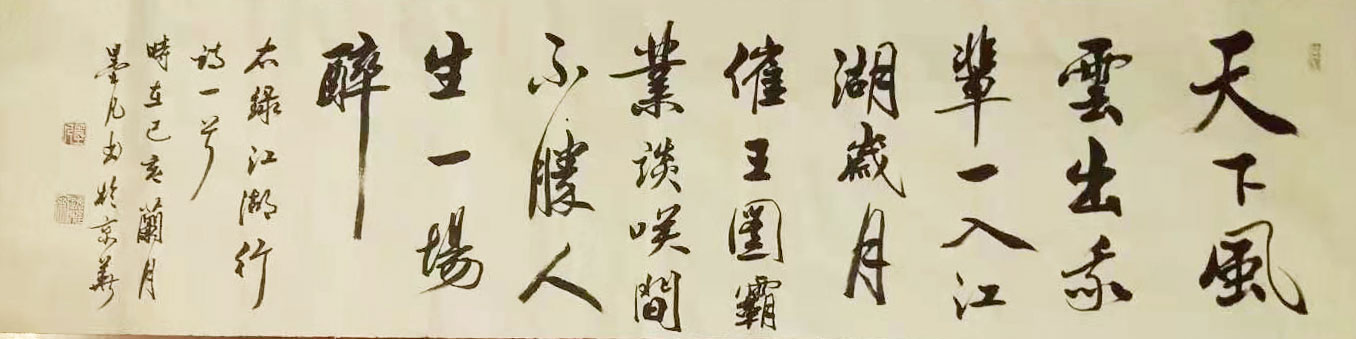 天下風
雲出我
輩一入江
湖歲月
催王圖霸
業談咲間
不勝人
生一場
醉
右錄江湖行
詩一首
時在己亥蘭月
墨凡書於京華